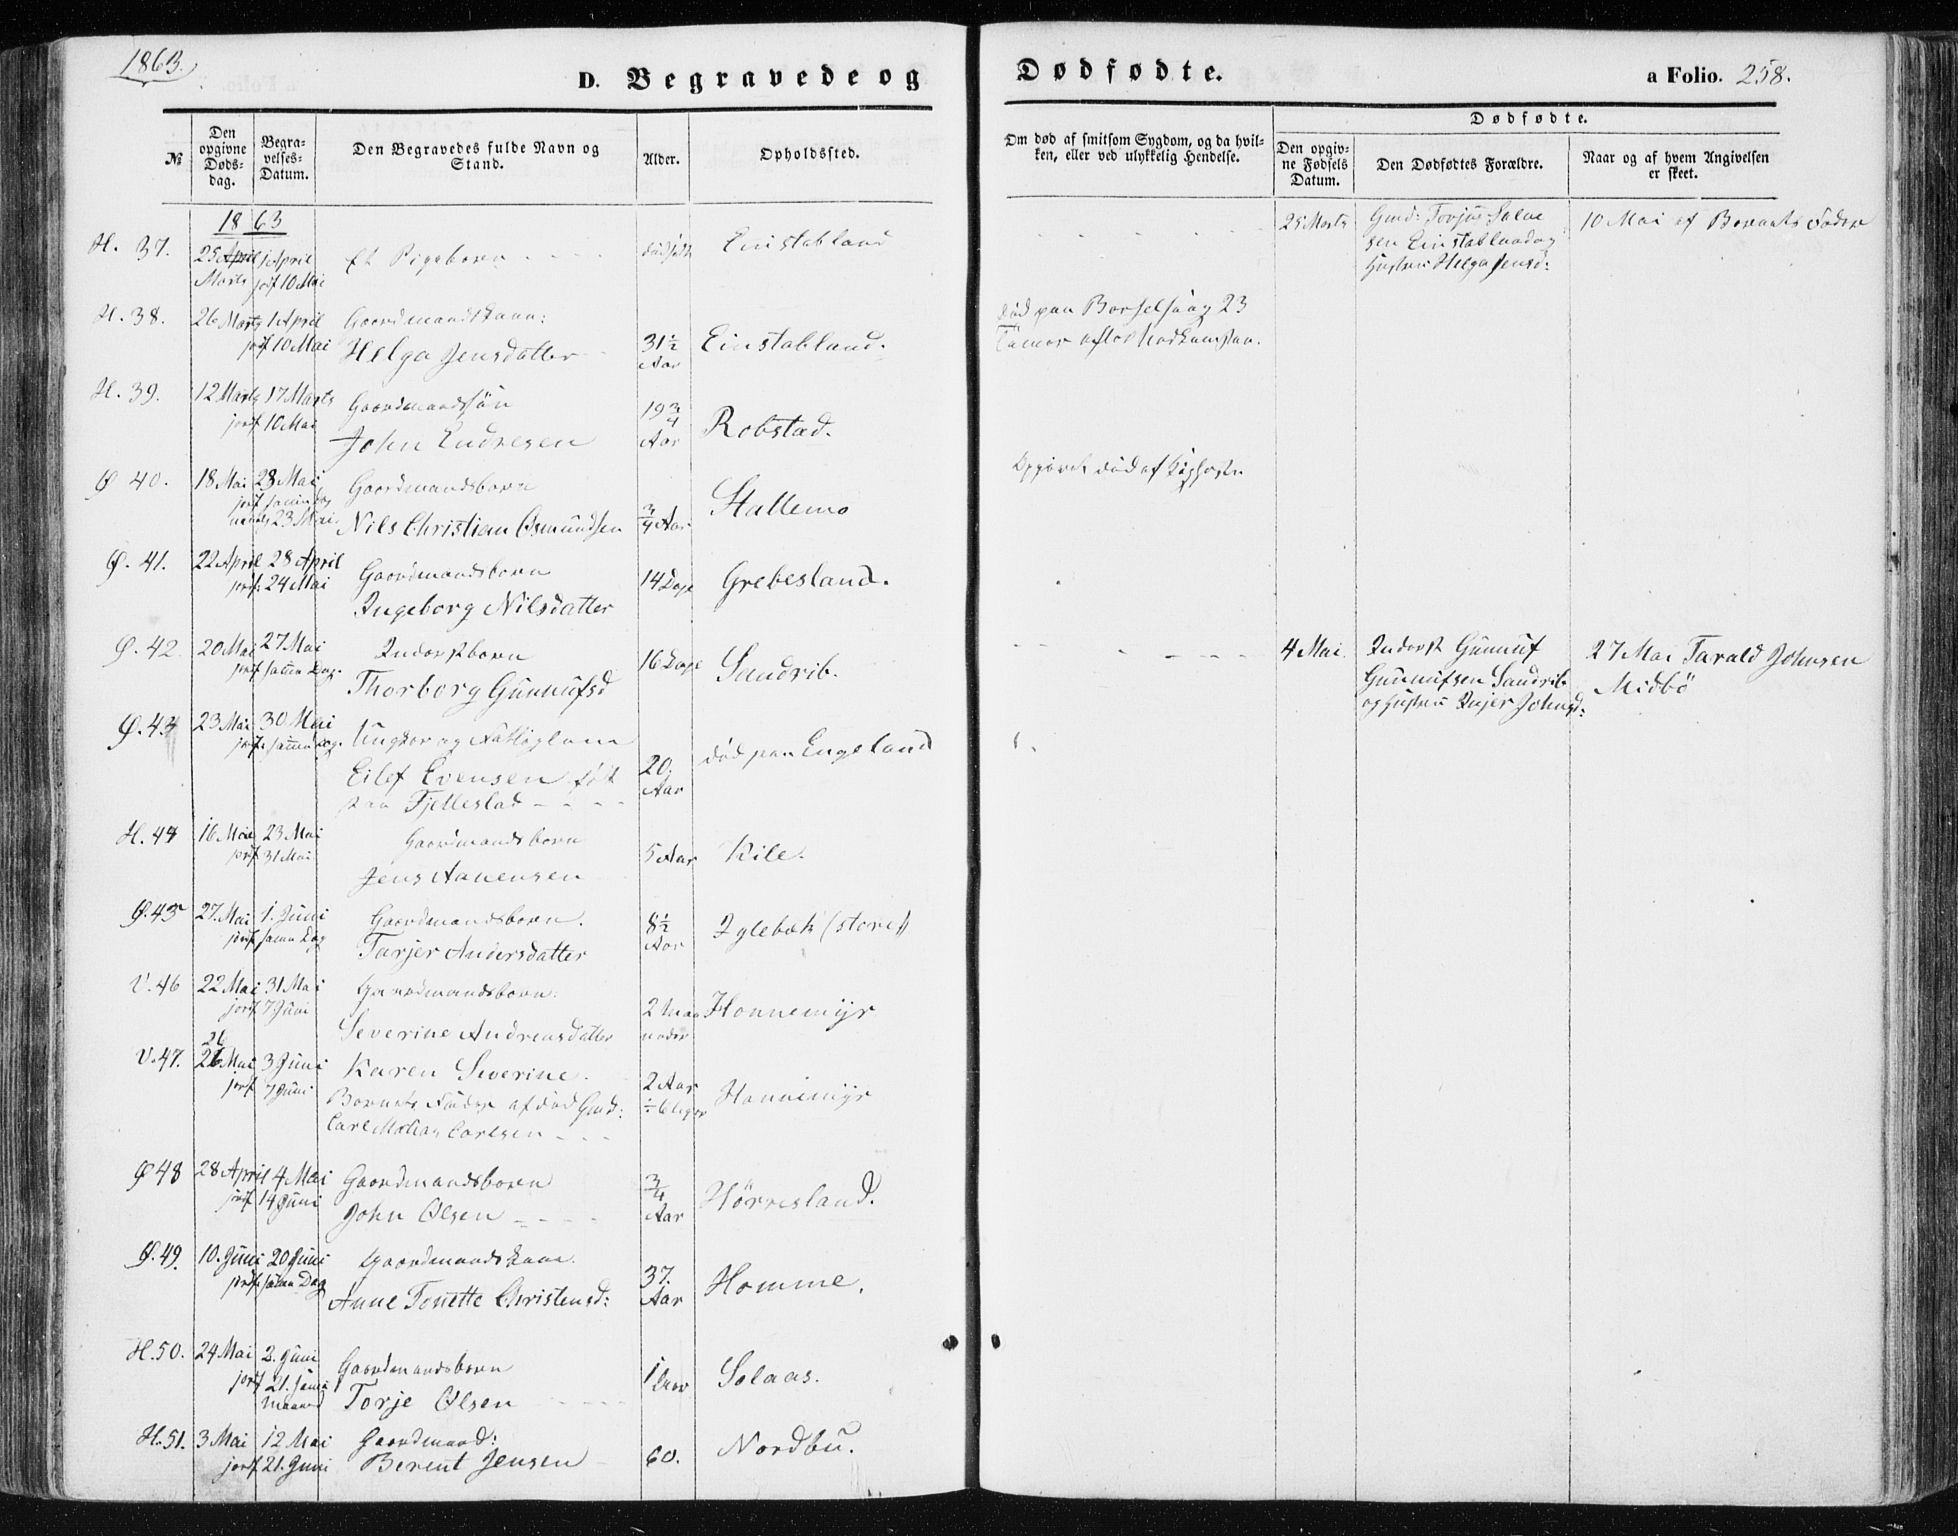 1863.
D. Begravede og Dødfødte.
a Folio. 258.
№
Den opgivne Døds-dag.
Begra-velses-Datum.
Den Begravedes fulde Navn og Stand.
Alder.
Opholdssted.
Om død af smitsom Sygdom, og da hvil-ken, eller ved ulykkelig Hendelse.
Dødfødte.
Den opgiv-ne Fødsels Datum.
Den Dødfødtes Forældre.
Naar og af hvem Angivelsen er skeet.
1863
H. 37. 25 April Marts 1 April jorf 10 Mai Et Pigebarn - - - - dødfødt Einstabland
25 Marts Gmd: Torjus Salve
sen Einstabland og
Hustru Helga Jensd:
10 Mai af Barnets Fader
H. 38. 26 Marts 1 April Gaardmandskone:
jorf 10 Mai Helga Jensdatter 31½ Aar Einstabland.
død paa Barselseng 23
Timer efter Nedkomsten.
H. 39. 12 Marts 17 Marts Gaardmandssøn
jorf 10 Mai John Endresen 19 3/4 Aar Robstad.
Ø 40. 18 Mai 23 Mai Gaardmandsbarn
jorf samme Dag
23 Mai Nils Christian Osmundsen 3/4 Aar Stallemo
Opgivet død af Kighoste
Ø. 41. 22 April 28 April Gaardmandsbarn
jorf: 24 Mai Ingeborg Nilsdatter 14 Dage Grebesland.
Ø. 42. 20 Mai 27 Mai Inderstbarn
jorf samme Dag. Thorborg Gunnufsd 16 Dage Sandrib.
4 Mai Inderst Gunnuf
Gunnufsen Sandrib
og Hustru Inger Johnsd:
27 Mai Tarald Johnsen
Midbö
Ø. 43 23 Mai 30 Mai Ungkar og Fattiglem
jorf samme Dag.
Eilef Evensen født
paa Fjellestad - - - - 20. Aar død paa Engeland
H. 44 16 Mai 23 Mai Gaardmandsbarn
jorf 31 Mai Jens Aanensen 5 Aar Kile.
Ø. 45 27. Mai 1. Juni Gaardmandsbarn.
jorf samme Dag Tarjer Andersdatter 8½ Aar Fylebæk (store)
V. 46 22 Mai 31 Mai Gaardmandsbarn:
jorf 7 Juni Severine Andreasdatter 2 Maaneder Honnemyr
V. 47. 26 26 Mai 3 Juni Karen Severine.
jorf 7 Juni Barnets Fader afdød Gmd:
Carl Mathias Carlsen - - - 2 Aar Honnemyr
Ø 48 28 April 4 Mai Gaardmandsbarn
jorf 14 Juni John Olsen - - - 3/4 Aar Hörresland.
Ø. 49. 10. Juni 20 Juni Gaardmandskone.
jorf samme Dag Anne Tonette Christensd: 37. Aar Homme.
H. 50. 24 Mai 2. Juni Gaardmandsbarn
jorf 21. Juni
Torje Olsen - - - - 1 Maaned Solaas.
H. 51. 3 Mai 12 Mai Gaardmand:
jorf 21. Juni Berent Jensen 60. Nordbu.